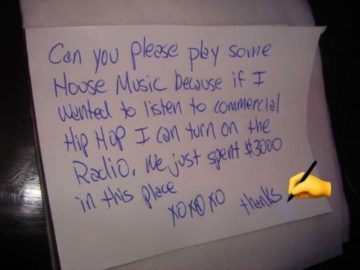 Can you please play some
House Music because if I
wanted to listen to commercial
Hip Hop I can turn on the
Radio. We just spent $3000
in this place
XOXOXO thanks